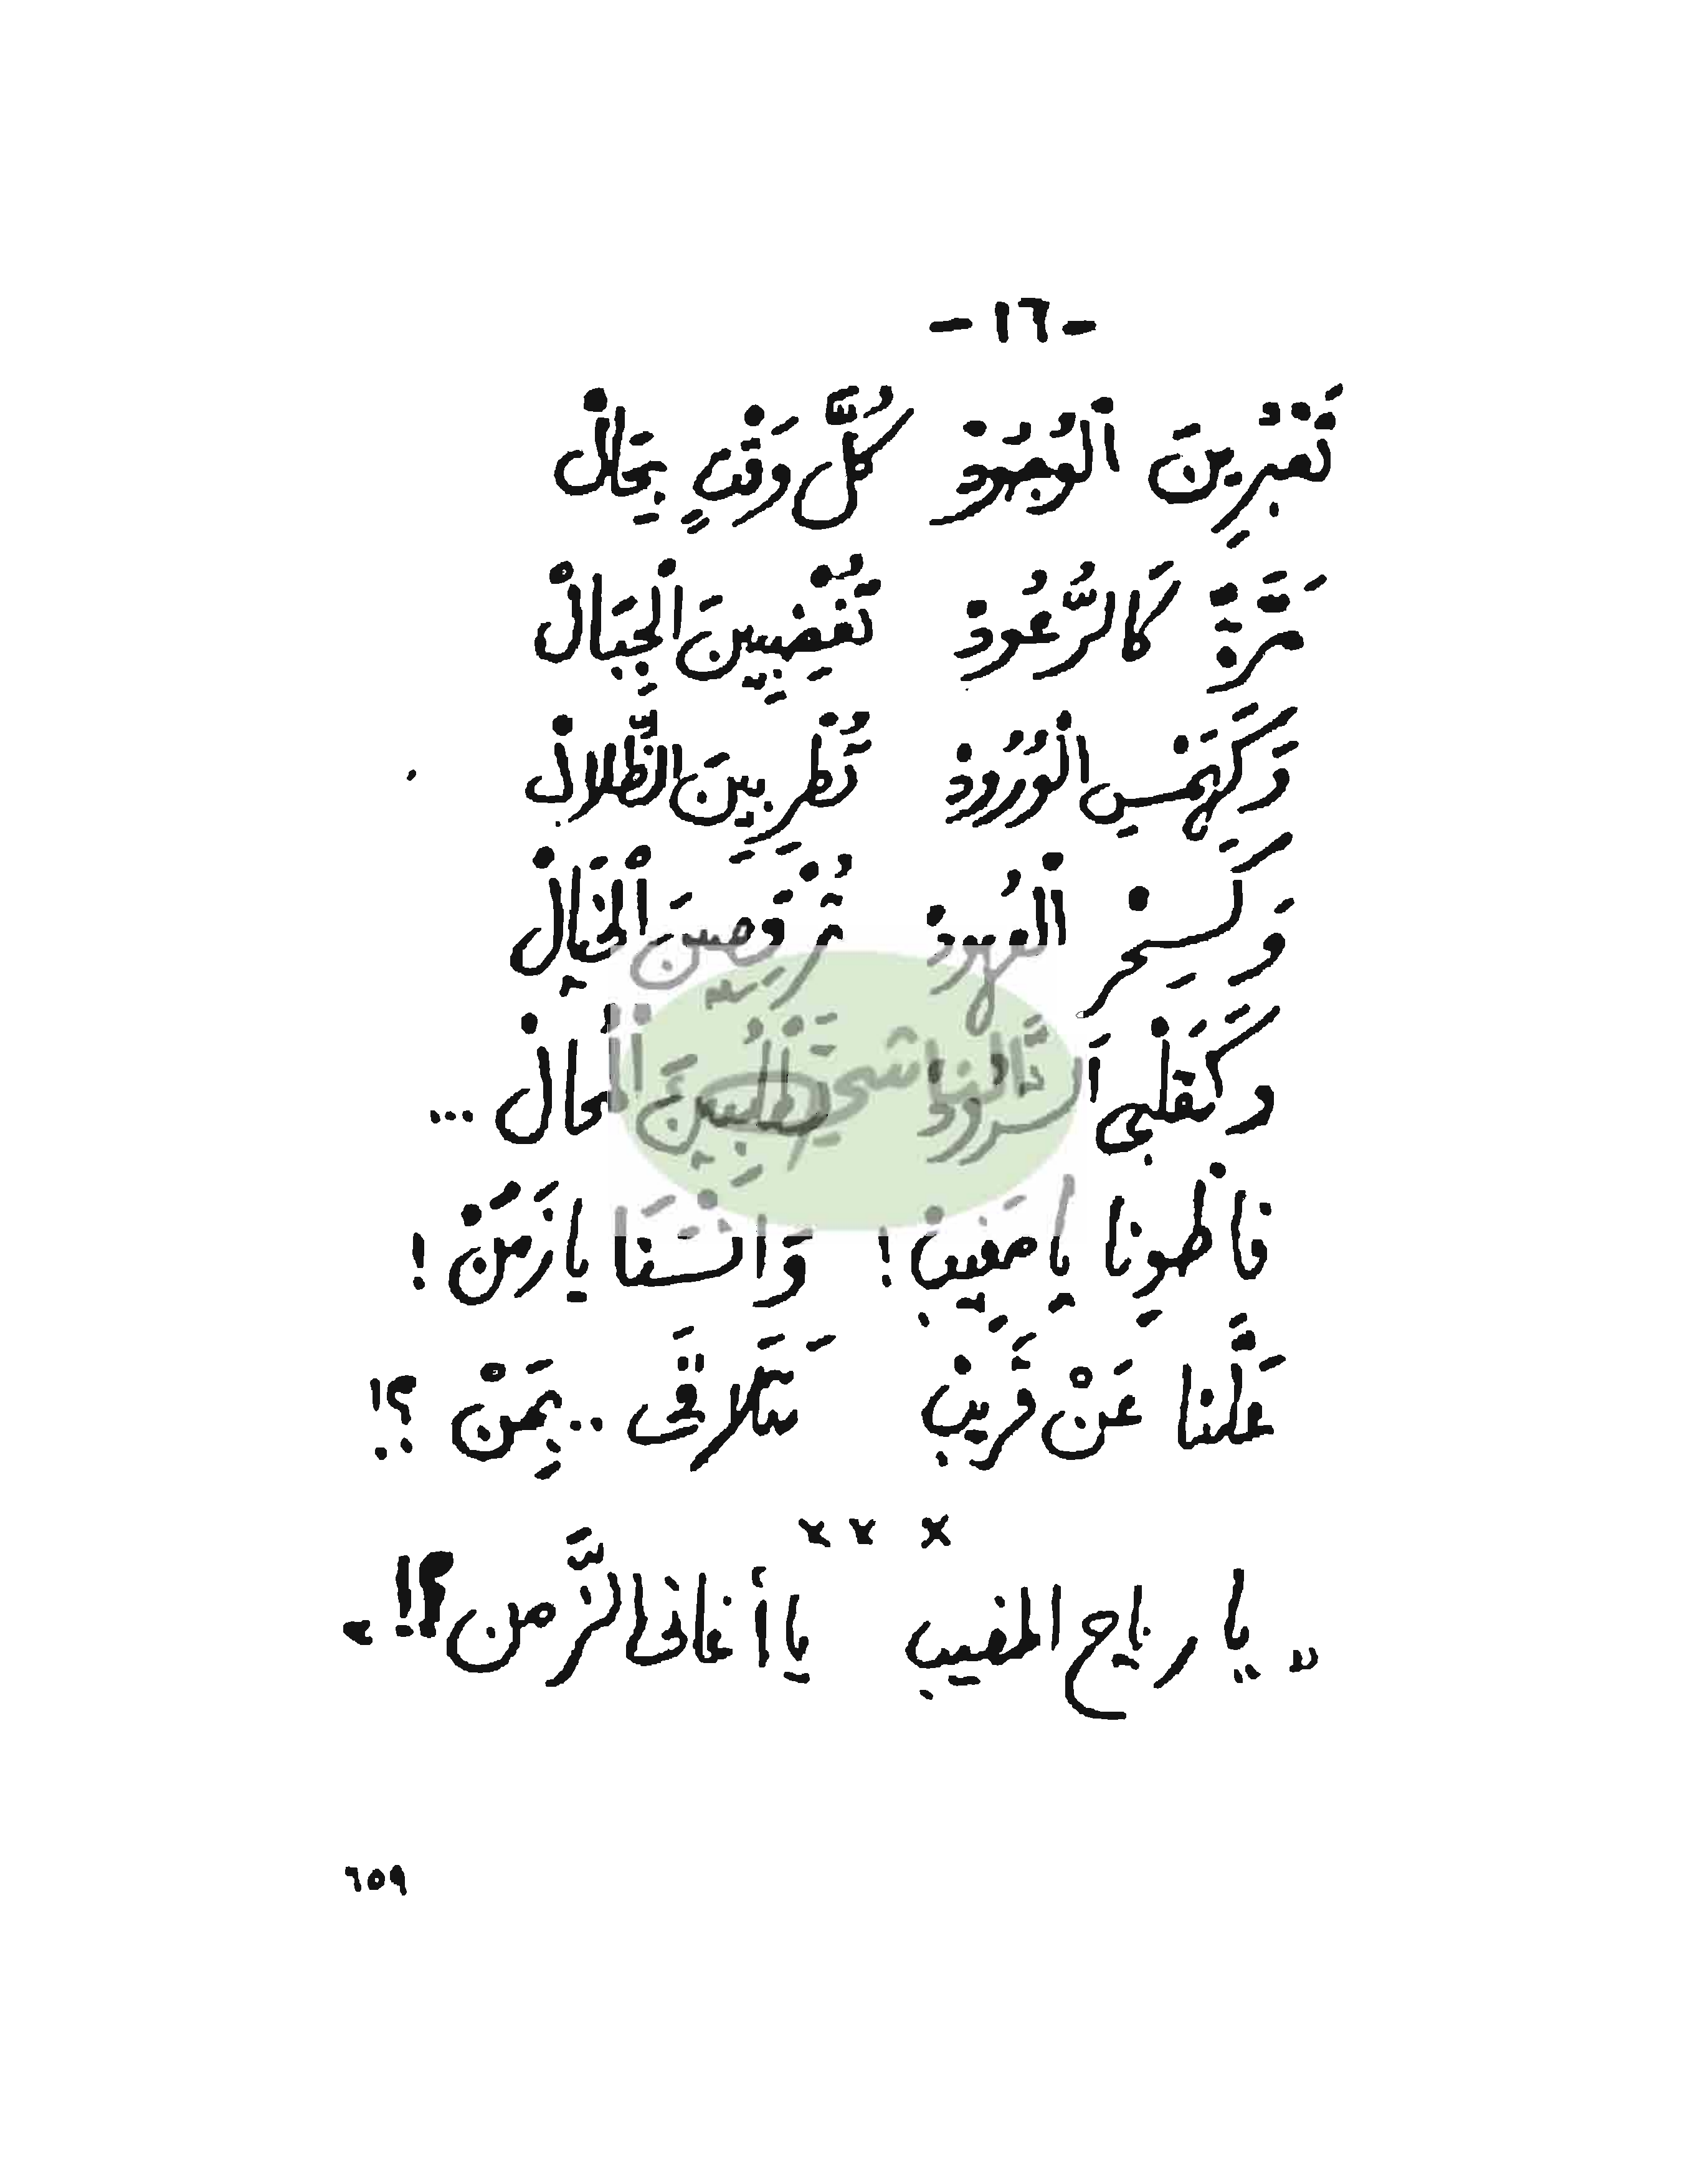 - ١٦ -
تَعْبُرِينَ الْوُجُودْ كُلَّ وَقْتٍ بِحَالْ
مَرَّةً كَالرُّعُودْ تُغْضِبِينَ الْجِبَالْ
وَكَهَمْسِ الْوُرُودْ تُطْرِبِينَ الظِّلَالْ
وَكَسِحْرِ الْعُهُودْ تُرْقِصِينَ الْخَيَالْ
وَكَقَلْبِي الشَّرُودْ تَطْلُبِينَ الْمُحَالْ ...
فَاطْوِنَا يَا مَغِيبْ! وَانْسَنَا يَا زَمَنْ!
عَلَّنَا عَنْ قَرِيبْ نَتَلَاقَى .. بِمَنْ ؟!
x x x
" يا رياح المغيب يا أغاني الزَّمن ؟! "
٦٥٩